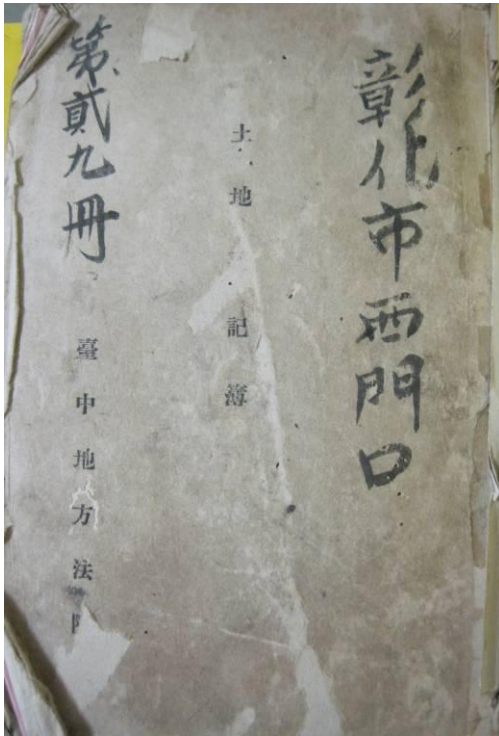 彰化市西門口
土地記簿
第貳九冊
臺中地方法